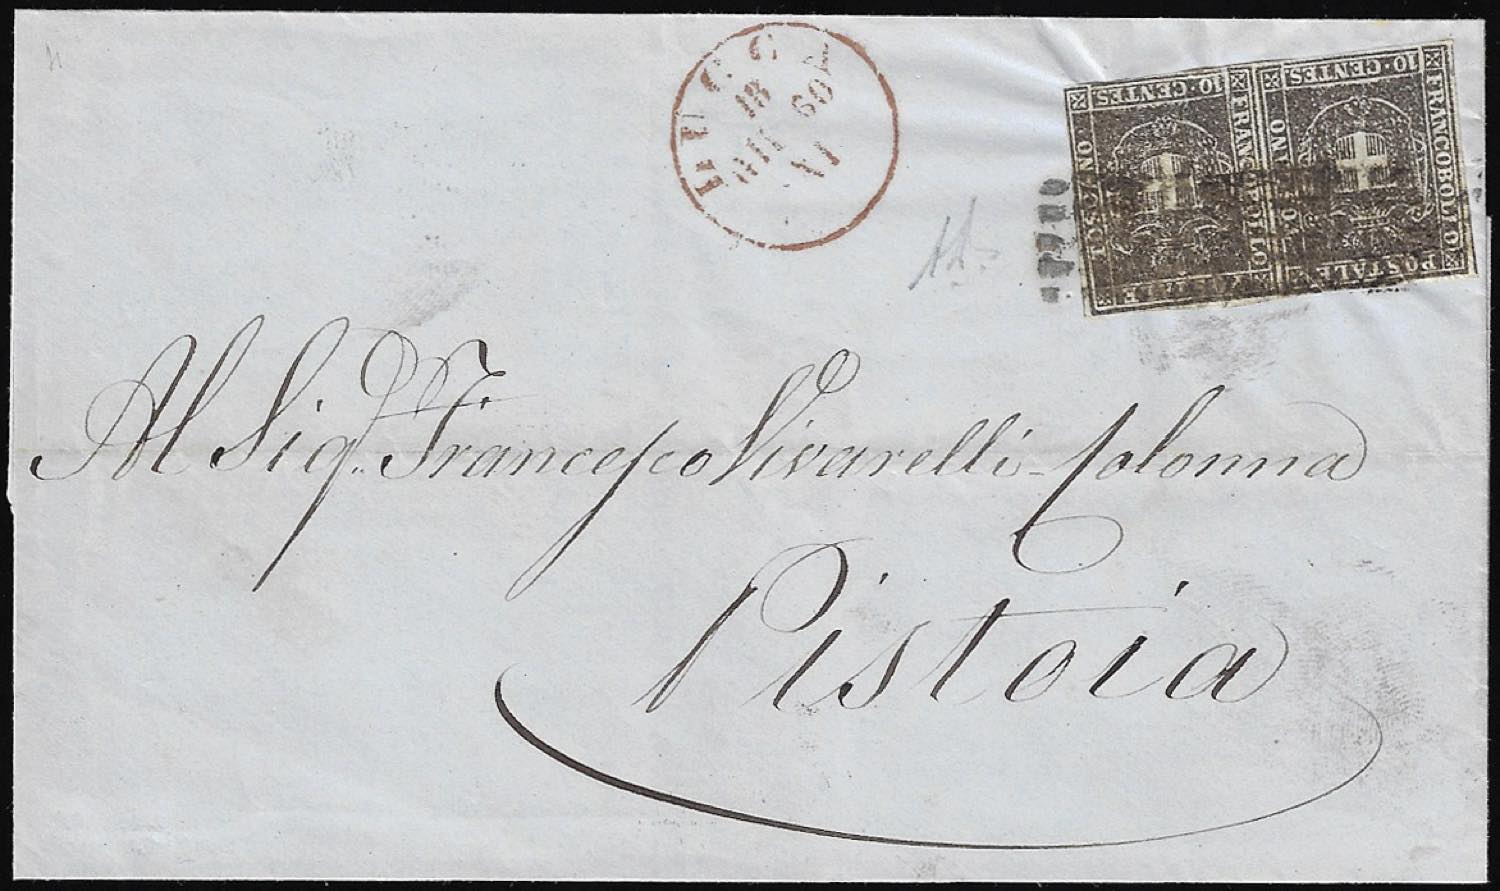 LUCCA
18
GIU
60
VI
10·CENTES
FRANCOBOLLO
POSTALE
TOSCANO
10·CENTES
FRANCOBOLLO
POSTALE
TOSCANO
Al Sig.r Francesco Vivarelli-Colonna
Pistoia